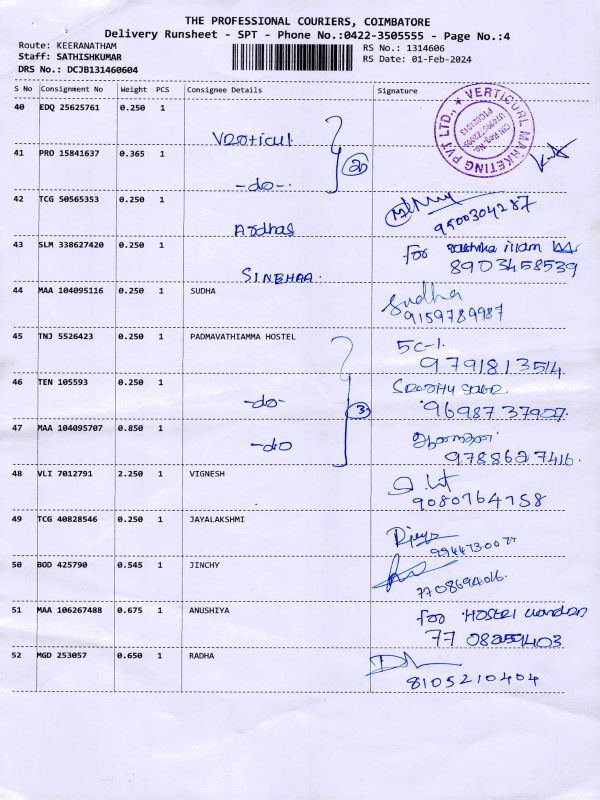 THE PROFESSIONAL COURIERS, COIMBATORE
Delivery Runsheet - SPT - Phone No.:0422-3505555 - Page No.:4
Route: KEERANATHAM
RS No.: 1314606
Staff: SATHISHKUMAR
RS Date: 01-Feb-2024
DRS No.: DCJB131460604
S No Consignment No Weight PCS Consignee Details Signature
40 EDQ 25625761 0.250 1 Verticul
VERTICURL MARKETING PVT LTD.,
41 PRO 15841637 0.365 1 -do-.
2
42 TCG 50565353 0.250 1 Ardhas
9500304287
43 SLM 338627420 0.250 1 SINEHAA.
for illam
8903458539
44 MAA 104095116 0.250 1 SUDHA
Sudha
9159789987
45 TNJ 5526423 0.250 1 PADMAVATHIAMMA HOSTEL
5C-1.
9791813514
46 TEN 105593 0.250 1 -do-
3
9698737907.
47 MAA 104095707 0.850 1 -do
9788627416.
48 VLI 7012791 2.250 1 VIGNESH
9080764758
49 TCG 40828546 0.250 1 JAYALAKSHMI
50 BOD 425790 0.545 1 JINCHY
7708694016.
51 MAA 106267488 0.675 1 ANUSHIYA
for Hostel
52 MGD 253057 0.650 1 RADHA
8105210404